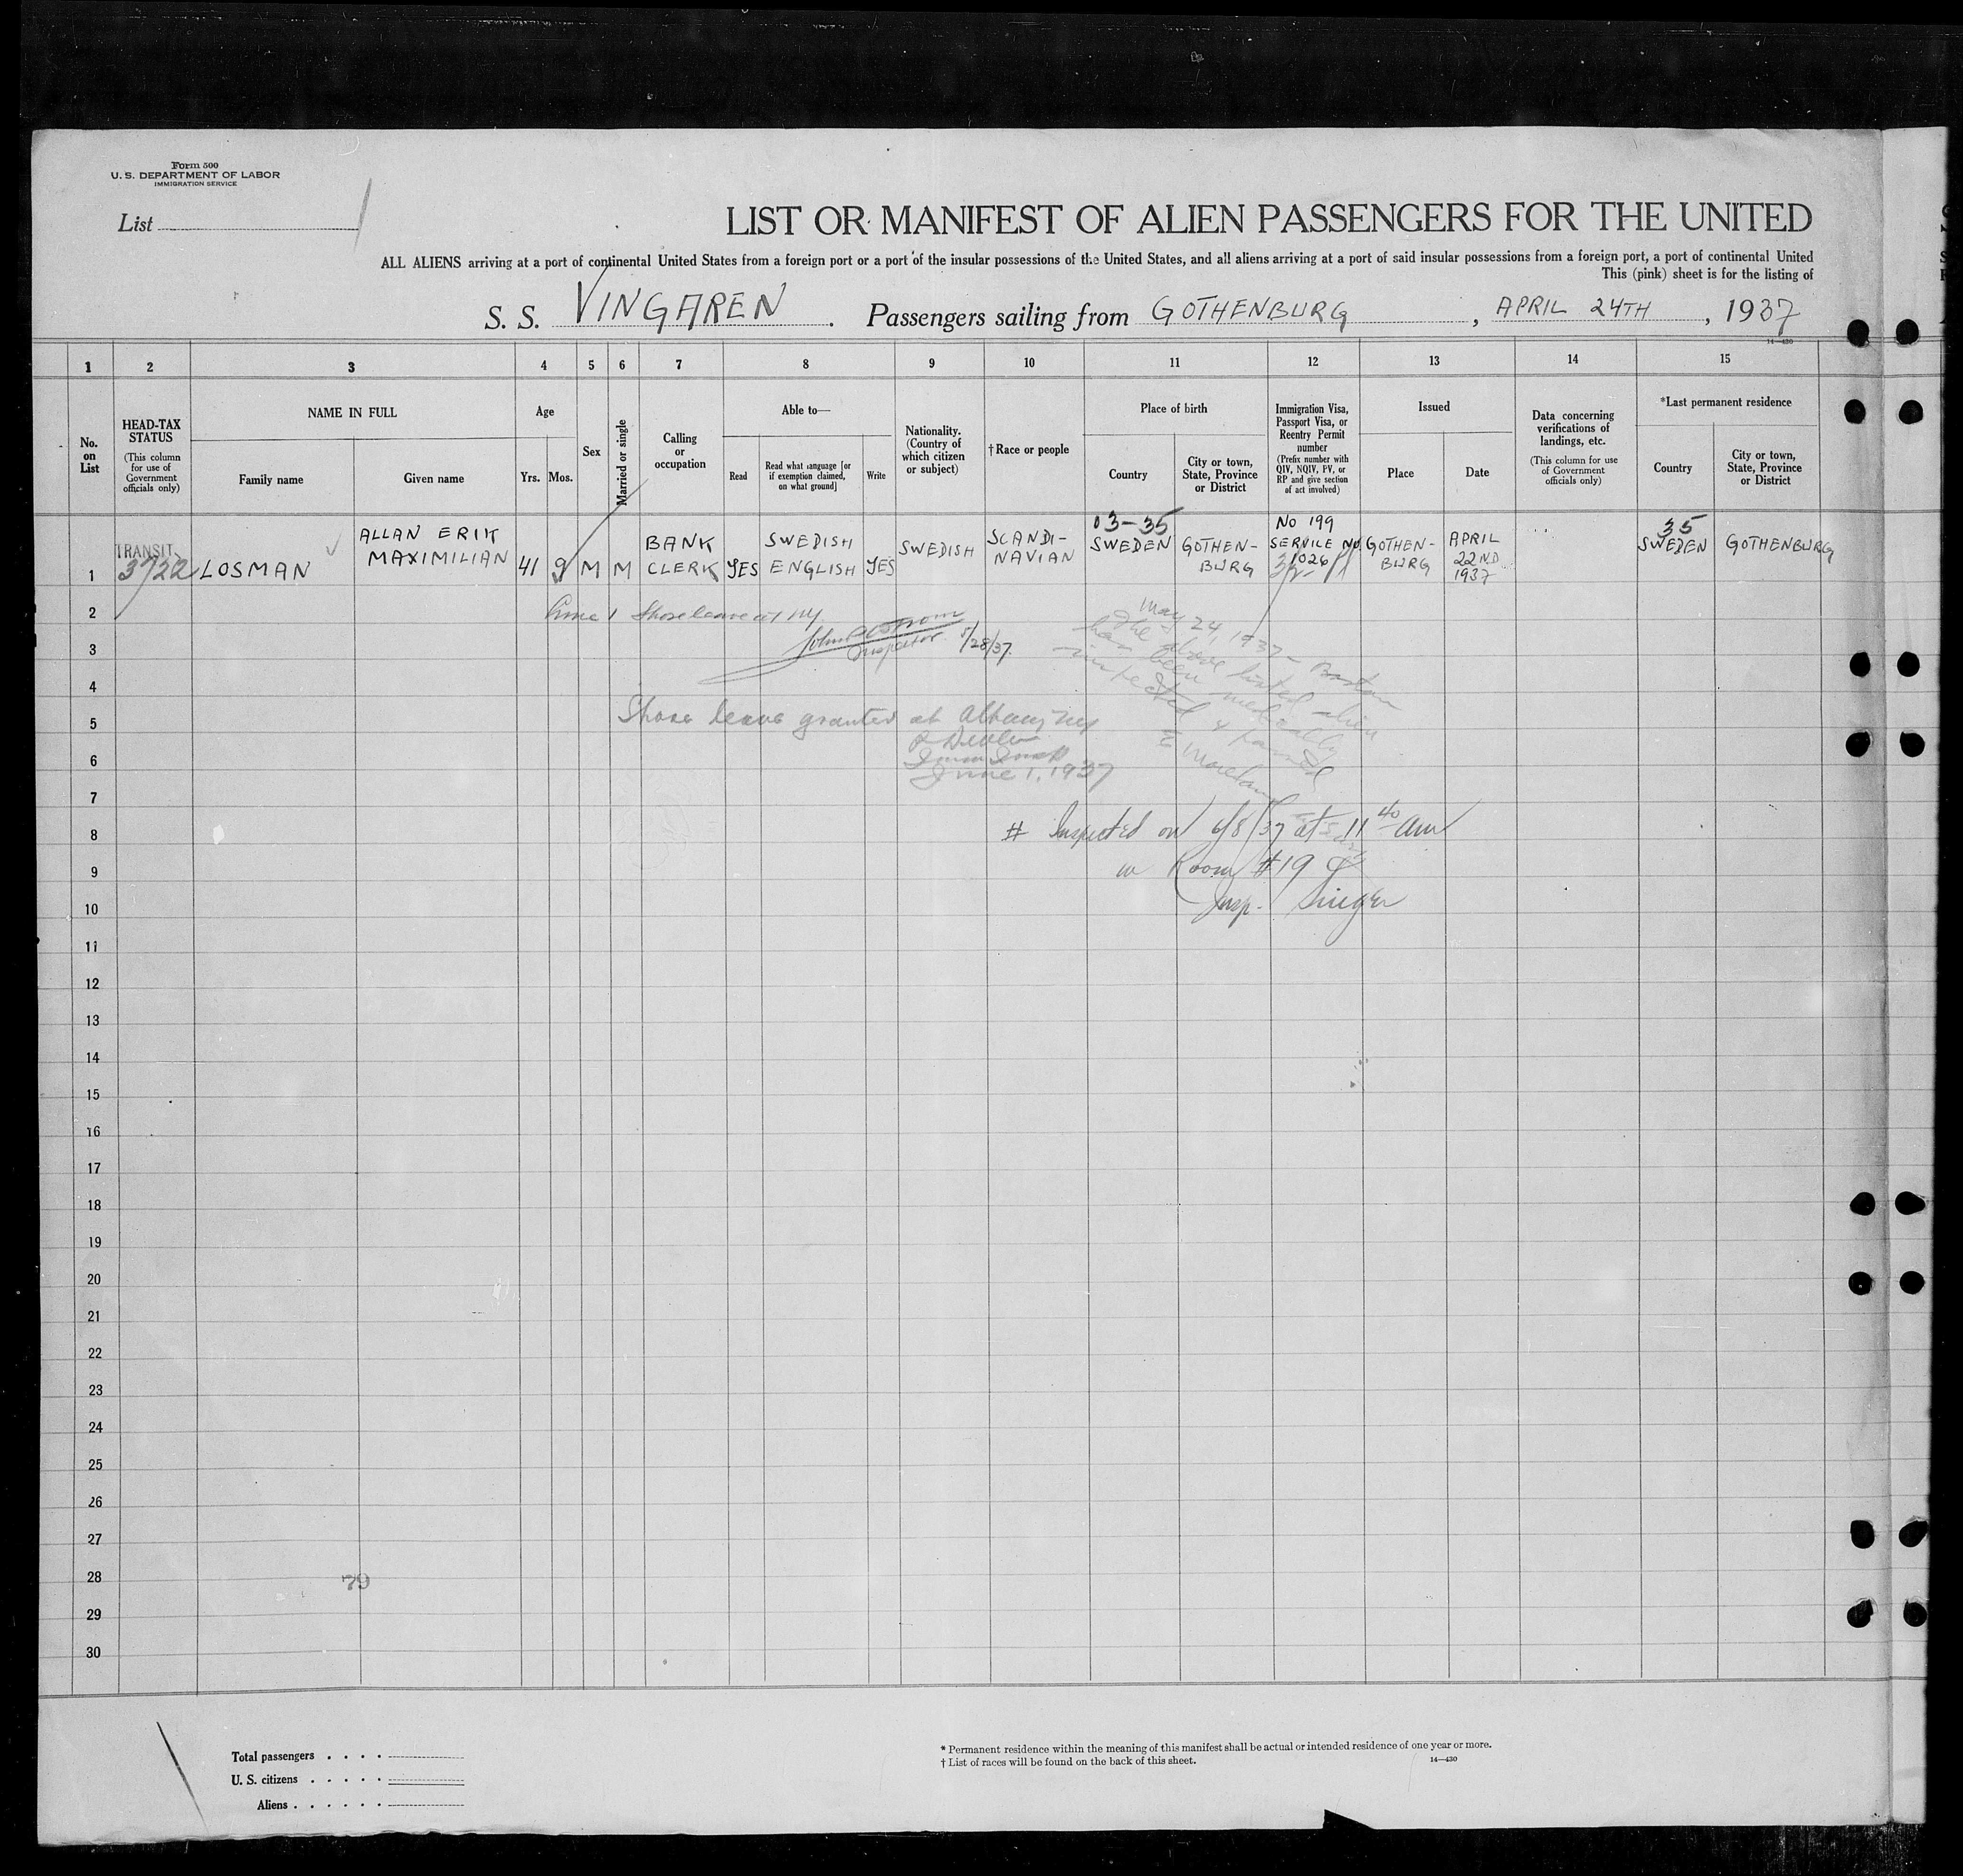 Form 500
U. S. DEPARTMENT OF LABOR
IMMIGRATION SERVICE
List
LIST OR MANIFEST OF ALIEN PASSENGERS FOR THE UNITED
ALL ALIENS arriving at a port of continental United States from a foreign port or a port of the insular possessions of the United States, and all aliens arriving at a port of said insular possessions from a foreign port, a port of continental United
This (pink) sheet is for the listing of
S. S. VINGAREN . Passengers sailing from GOTHENBURG , APRIL 24TH , 1937
14—430
1 2 3 4 5 6 7 8 9 10 11 12 13 14 15
No. on List
HEAD-TAX STATUS
(This column for use of Government officials only)
NAME IN FULL
Family name
Given name
Age
Yrs.
Mos.
Sex
Married or single
Calling or occupation
Able to—
Read
Read what language [or if exemption claimed, on what ground]
Write
Nationality. (Country of which citizen or subject)
†Race or people
Place of birth
Country
City or town, State, Province or District
Immigration Visa, Passport Visa, or Reentry Permit number
(Prefix number with QIV, NQIV, PV, or RP and give section of act involved)
Issued
Place
Date
Data concerning verifications of landings, etc.
(This column for use of Government officials only)
*Last permanent residence
Country
City or town, State, Province or District
1
TRANSIT
3722
LOSMAN
ALLAN ERIK
MAXIMILIAN
41
9
M
M
BANK
CLERK
YES
SWEDISH
ENGLISH
YES
SWEDISH
SCANDI-
NAVIAN
03-35
SWEDEN
GOTHEN-
BURG
No 199
SERVICE No
1026
GOTHEN-
BURG
APRIL
22ND
1937
35
SWEDEN
GOTHENBURG
2
Line 1 Shore leave at NY
Inspector 5/28/37.
May 24, 1937 - Boston
The above listed alien
has been medically
inspected & passed
3
4
5
Shore leave granted at Albany NY
June 1, 1937
6
7
8
# Inspected on 6/8/37 at 11 40 am
in Room #19
Insp.
9
10
11
12
13
14
15
16
17
18
19
20
21
22
23
24
25
26
27
28
79
29
30
Total passengers . . . .
U. S. citizens . . . . .
Aliens . . . . . .
* Permanent residence within the meaning of this manifest shall be actual or intended residence of one year or more.
† List of races will be found on the back of this sheet.
14—430